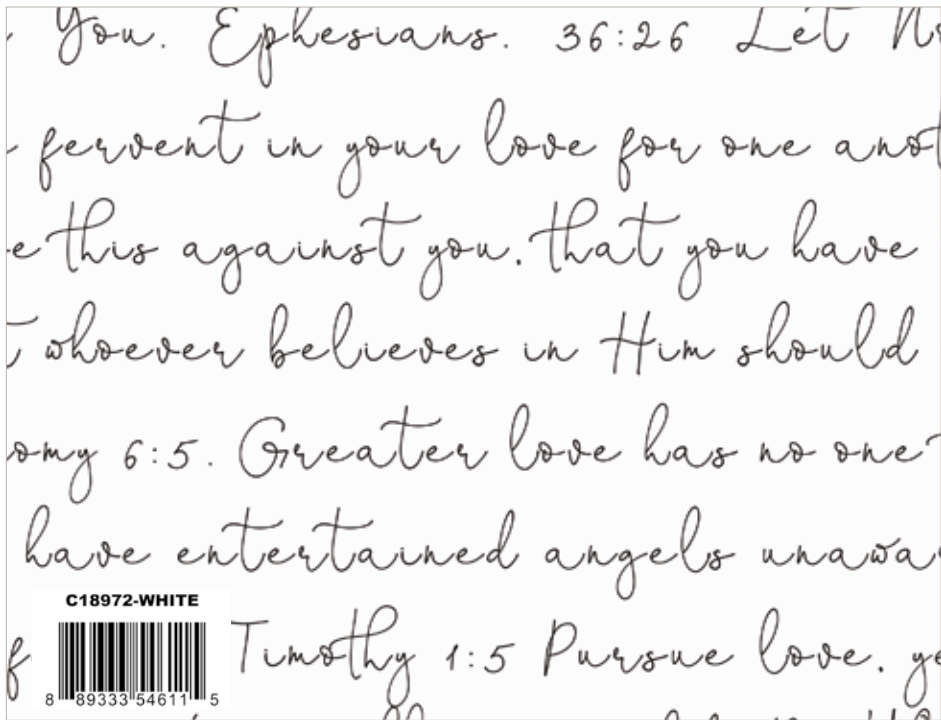 You. Ephesians. 36:26 Let
fervent in your love for one
this against you. that you have
whoever believes in Him should
6:5. Greater love has no one
have entertained angels
C18972-WHITE
Timothy 1:5 Pursue love.
8 89333 54611 5